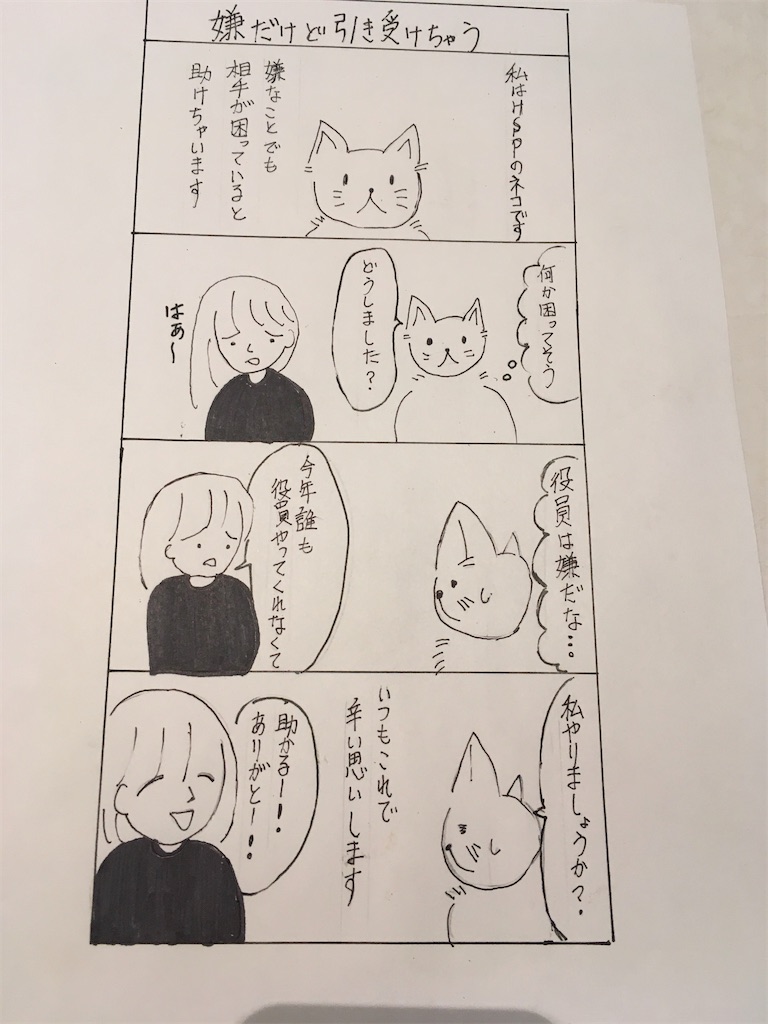 嫌だけど引き受けちゃう
私はHSPのネコです
嫌なことでも
相手が困っていると
助けちゃいます
何か困ってそう
どうしました?
はぁ〜
役員は嫌だな…。
今年誰も
役員やってくれなくて
私やりましょうか?
いつもこれで
辛い思いします
助かるー!
ありがとー!